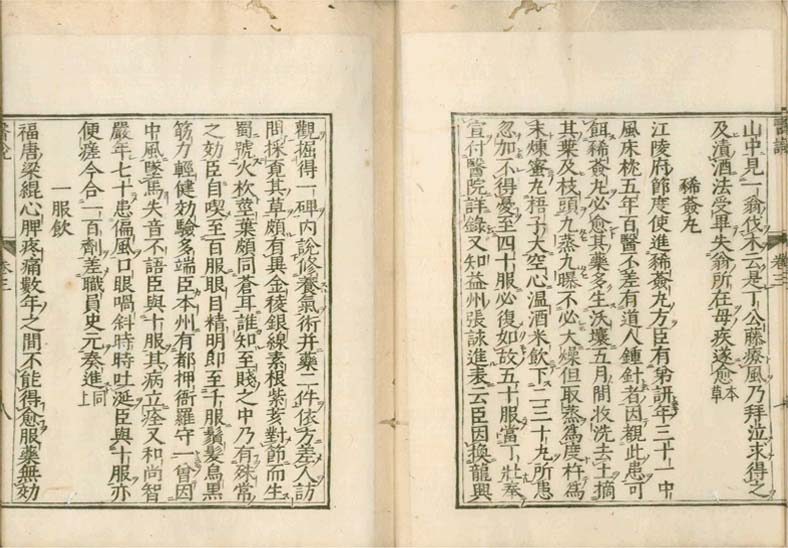 山中見一翁伐木云是丁公藤療風乃拜泣求得之
及漬酒法受畢失翁所在母疾遂愈本草
豨薟丸
江陵府節度使進豨薟丸方臣有弟訮年三十一中
風床枕五年百醫不差有道人鍾針者因覩此患可
餌豨薟丸必愈其藥多生沃壤五月間收洗去土摘
其葉及枝頭九蒸九曝不必大燥但取蒸爲度杵爲
末煉蜜丸梧子大空心温酒米飲下二三十九所患
忽加不得憂至四十服必復如故五十服當丁壯奉
宣付醫院詳錄又知益州張詠進表云臣因換龍興
觀掘得一碑内說修養氣術并藥二件依方差人訪
問採覔其草頗有異金稜銀線素根紫荄對節而生
蜀號火杴莖葉頗同蒼耳誰知至賤之中乃有殊常
之効臣自喫至百服眼目精明即至千服鬚髮烏黒
筋力輕健効驗多端臣本州有都押衙羅守一曾因
中風墜馬失音不語臣與十服其病立痊又和尚智
嚴年七十患偏風口眼喎斜時時吐涎臣與十服亦
便痊今合一百劑差職員史元奏進同上
一服飲
福唐梁緄心脾疼痛數年之間不能得愈服藥無効
醫說
卷三
八